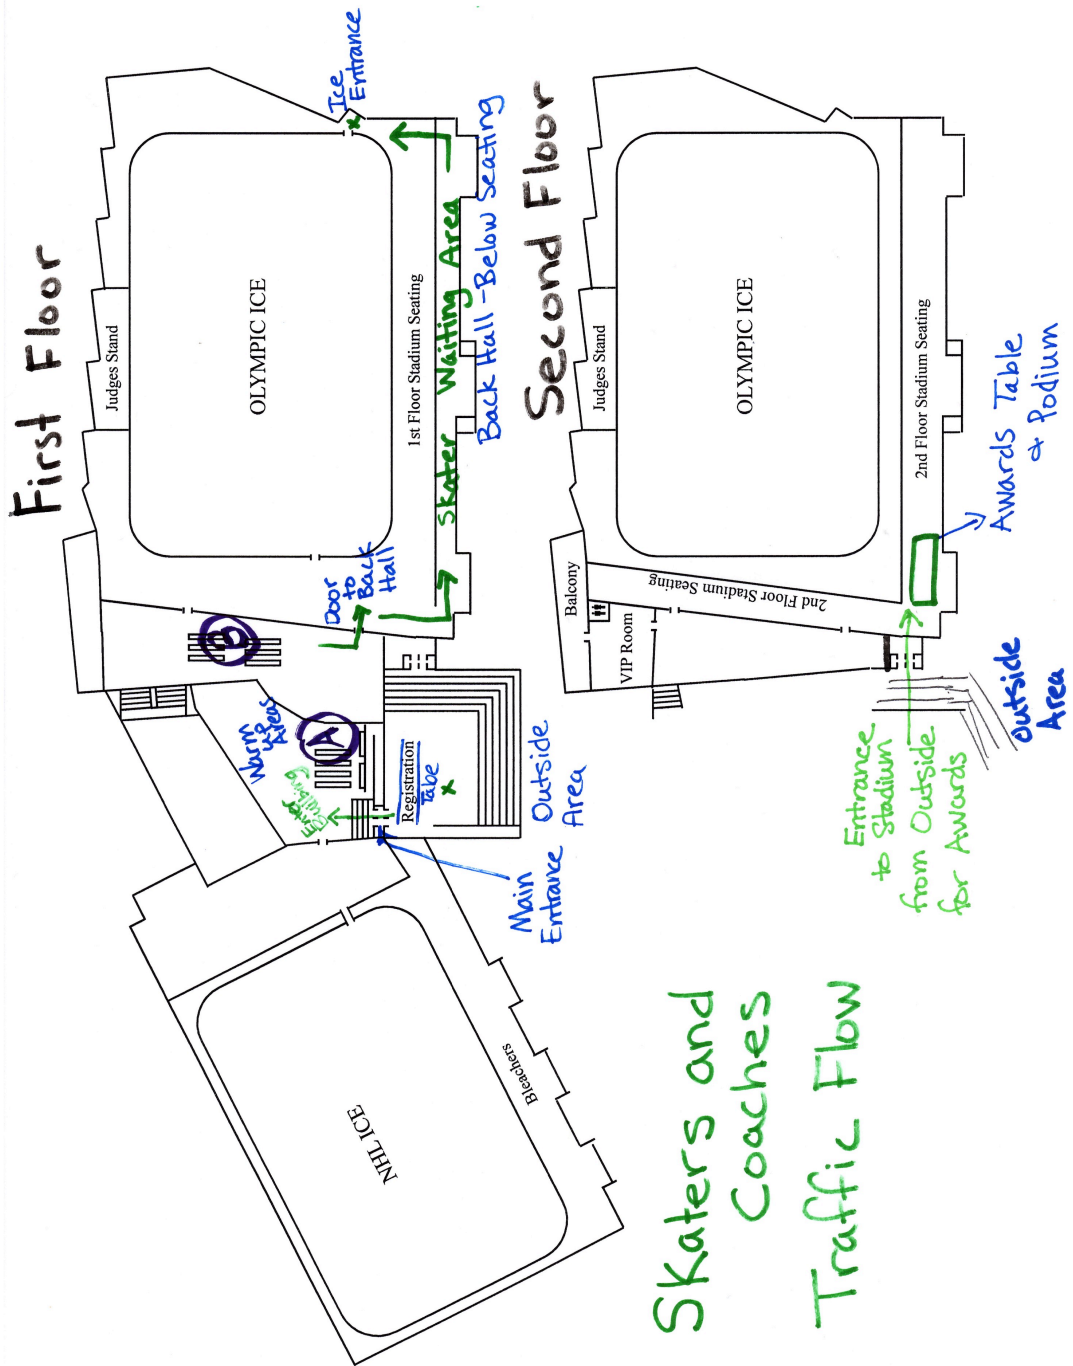 First Floor
Judges Stand
OLYMPIC ICE
1st Floor Stadium Seating
Ice
Entrance
Skater Waiting Area
Back Hall - Below Seating
Door
to
Back
Hall
B
Warm
up
Areas
A
Enter
Building
Registration
Tabe
x
Outside
Area
Main
Entrance
NHL ICE
Bleachers
Second Floor
Judges Stand
OLYMPIC ICE
2nd Floor Stadium Seating
2nd Floor Stadium Seating
Balcony
VIP Room
Awards Table
& Podium
Outside
Area
Entrance
to Stadium
from Outside
for Awards
Skaters and
Coaches
Traffic Flow